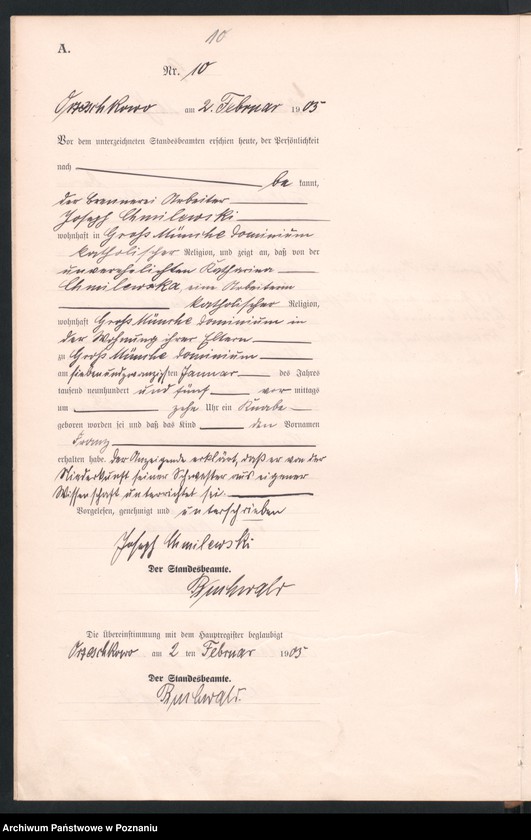 10
A.
Nr. 10
Orzeschkowo am 2. Februar 1905
Vor dem unterzeichneten Standesbeamten erschien heute, der Persönlichkeit
nach be kannt,
der Brennerei Arbeiter
Joseph Chmilewski
wohnhaft in Groß Münche Dominium
katholischer Religion, und zeigt an, daß von der
unverehelichten Katharina
Chmilewska, eine Arbeiterin
katholischer Religion,
wohnhaft Groß Münche Dominium in
der Wohnung ihrer Eltern
zu Groß Münche Dominium
am siebenundzwanzigsten Januar des Jahres
tausend neunhundert und fünf vor mittags
um zehn Uhr ein Knabe
geboren worden sei und daß das Kind den Vornamen
Franz
erhalten habe. Der Anzeigende erklärt, daß er von der
Niederkunft seiner Schwester aus eigener
Wissenschaft unterrichtet sei.
Vorgelesen, genehmigt und unterschrieben
Joseph Chmilewski
Der Standesbeamte.
Buchwald
Die Übereinstimmung mit dem Hauptregister beglaubigt
Orzeschkowo am 2 ten Februar 1905
Der Standesbeamte.
Buchwald.
Archiwum Państwowe w Poznaniu